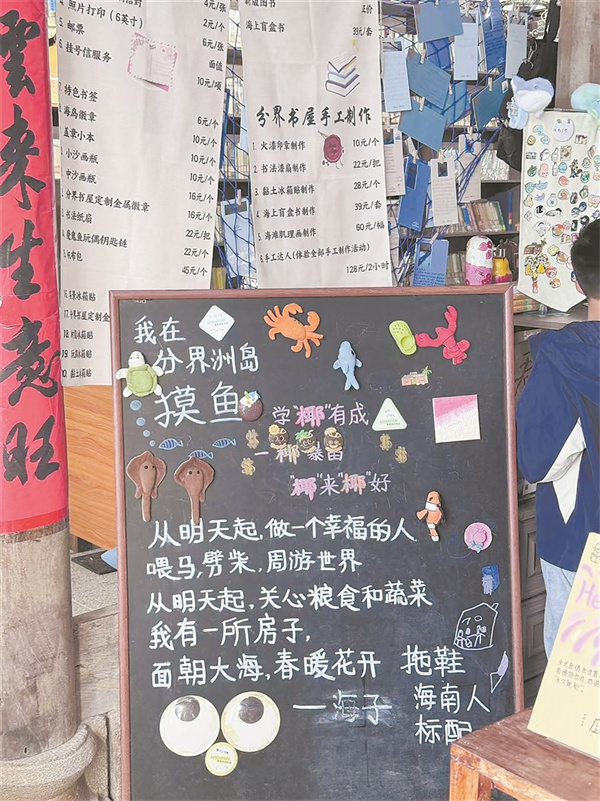 雲来生意旺
4.照片打印(6英寸) 4元/张
5.邮票 2元/个
6.挂号信服务 4元/张
面值
10元/项
7.特色书签
8.海岛徽章
盖章小本 6元/个
小沙画瓶 10元/个
中沙画瓶 10元/个
分界书屋定制金属徽章 16元/个
书法纸扇 16元/个
22元/把
22元/个
45元/个
正价
海上盲盒书 39元/套
分界书屋手工制作
1.火漆印章制作 10元/个
2.书法漆扇制作 22元/把
3.黏土冰箱贴制作 28元/个
4.海上盲盒书制作 39元/套
5.海滩肌理画制作 60元/幅
6.手工达人(体验全部手工制作活动)
128元/2小时
我在
分界洲岛
摸鱼
学"椰"有成
一"椰"暴富
"椰"来"椰"好
从明天起,做一个幸福的人
喂马,劈柴,周游世界
从明天起,关心粮食和蔬菜
我有一所房子,
面朝大海,春暖花开
—海子
拖鞋
海南人
标配